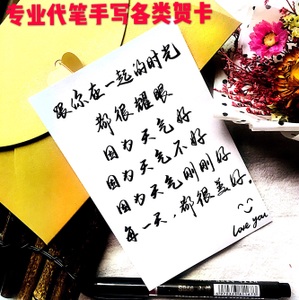 专业代笔手写各类贺卡
跟你在一起的时光
都很耀眼
因为天气好
因为天气不好
因为天气刚刚好
每一天，都很美好。
Love you